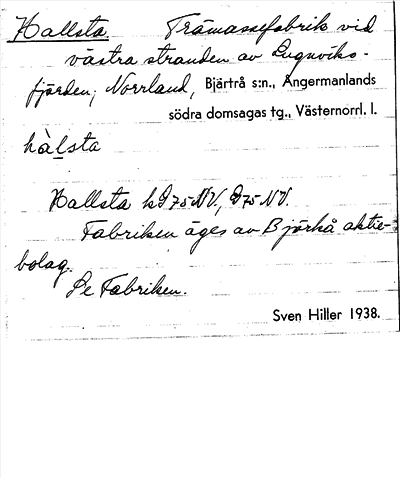 Hallsta. Trämassefabrik vid
västra stranden av Lugnviks-
fjärden, Norrland, Bjärtrå s:n., Ångermanlands
södra domsagas tg., Västernorrl. l.
hàlsta
Hallsta kD75NV, D75NV.
Fabriken äges av Björkå aktie-
bolag.
Se Fabriken.
Sven Hiller 1938.